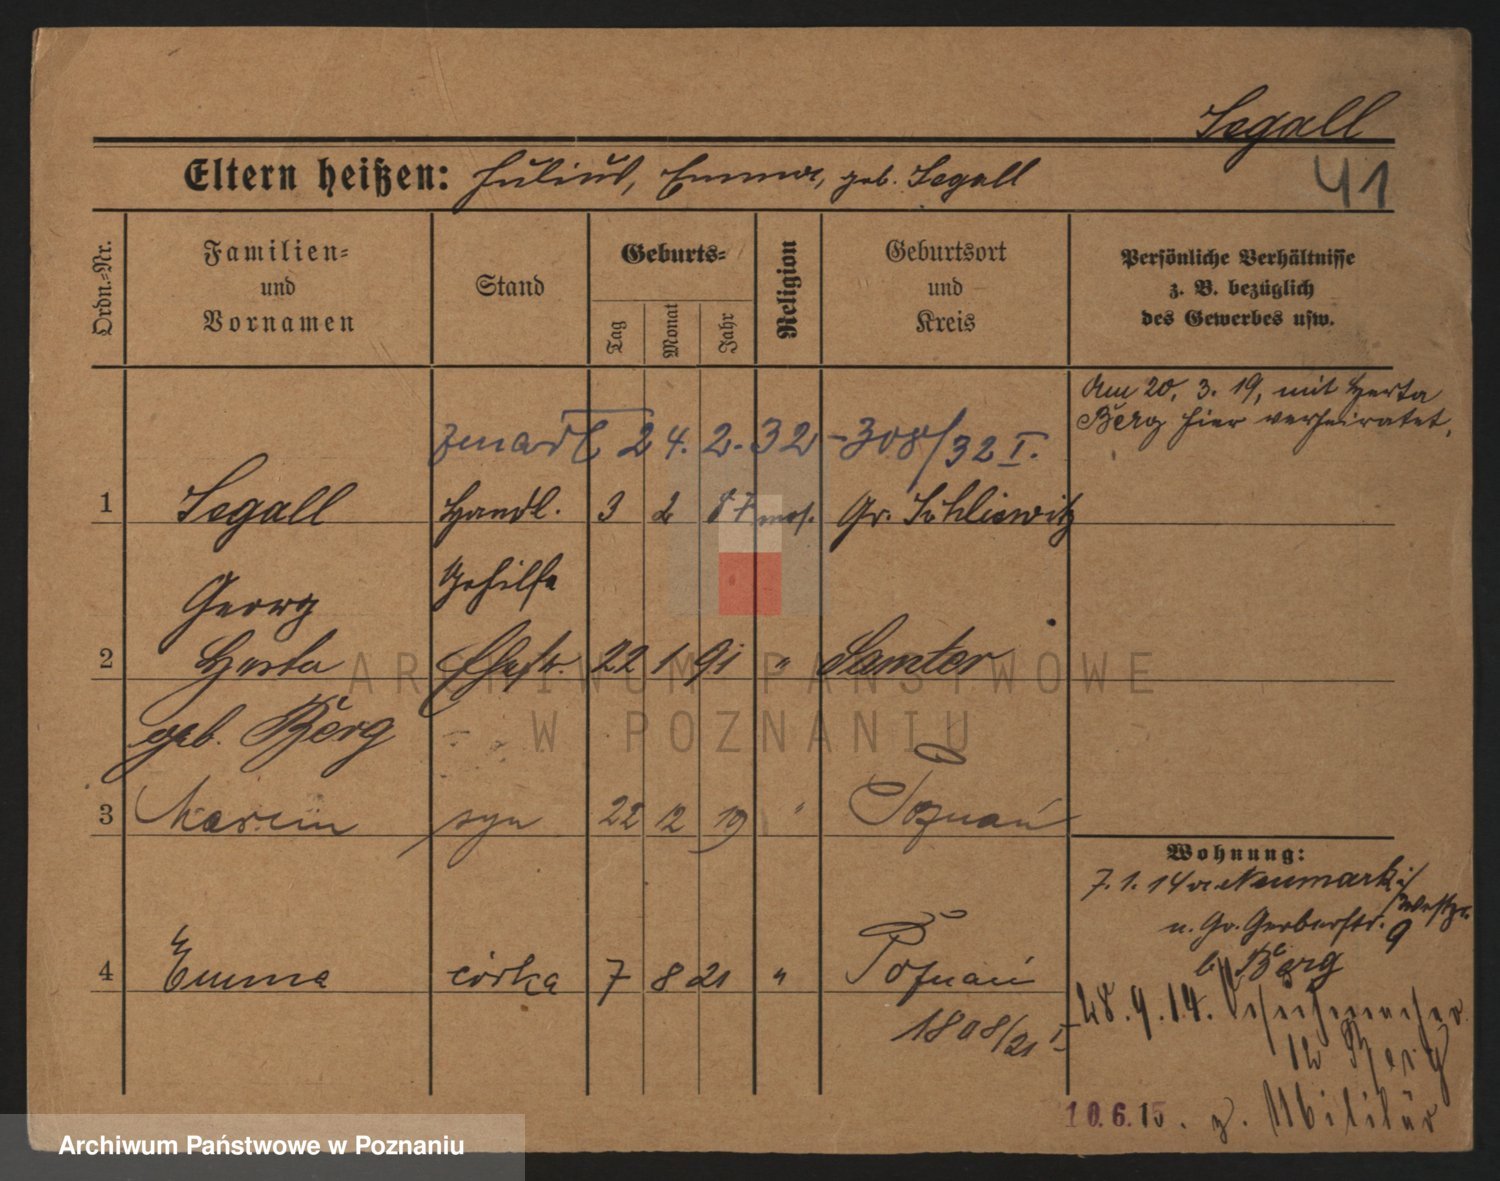 Segall
41
Eltern heißen: Julius, Emma, geb. Segall
Ordn.-Nr.
Familien-
und
Vornamen
Stand
Geburts-
Tag
Monat
Jahr
Religion
Geburtsort
und
Kreis
Persönliche Verhältnisse
z. B. bezüglich
des Gewerbes usw.
Am 20. 3. 19, mit Herta
Berg hier verheiratet.
zmarł 24. 2. 32 - 308/32 I.
1 Segall Handl. 3 2 87 mos. Gr. Schliewitz
Georg Gehilfe
2 Herta Ehefr. 22 1 91 " Samter
geb. Berg
3 Marcin syn 22 12 19 " Poznań
Wohnung:
7. 1. 14 Neumark i/
Westpr.
n. Gr. Gerberstr. 9
b. Berg
4 Emma córka 7 8 21 " Poznań
1808/21 I
28. 9. 14. Schuhmacher
12 Berg
10.6.15. z. Militär
ARCHIWUM PAŃSTWOWE
W POZNANIU
Archiwum Państwowe w Poznaniu